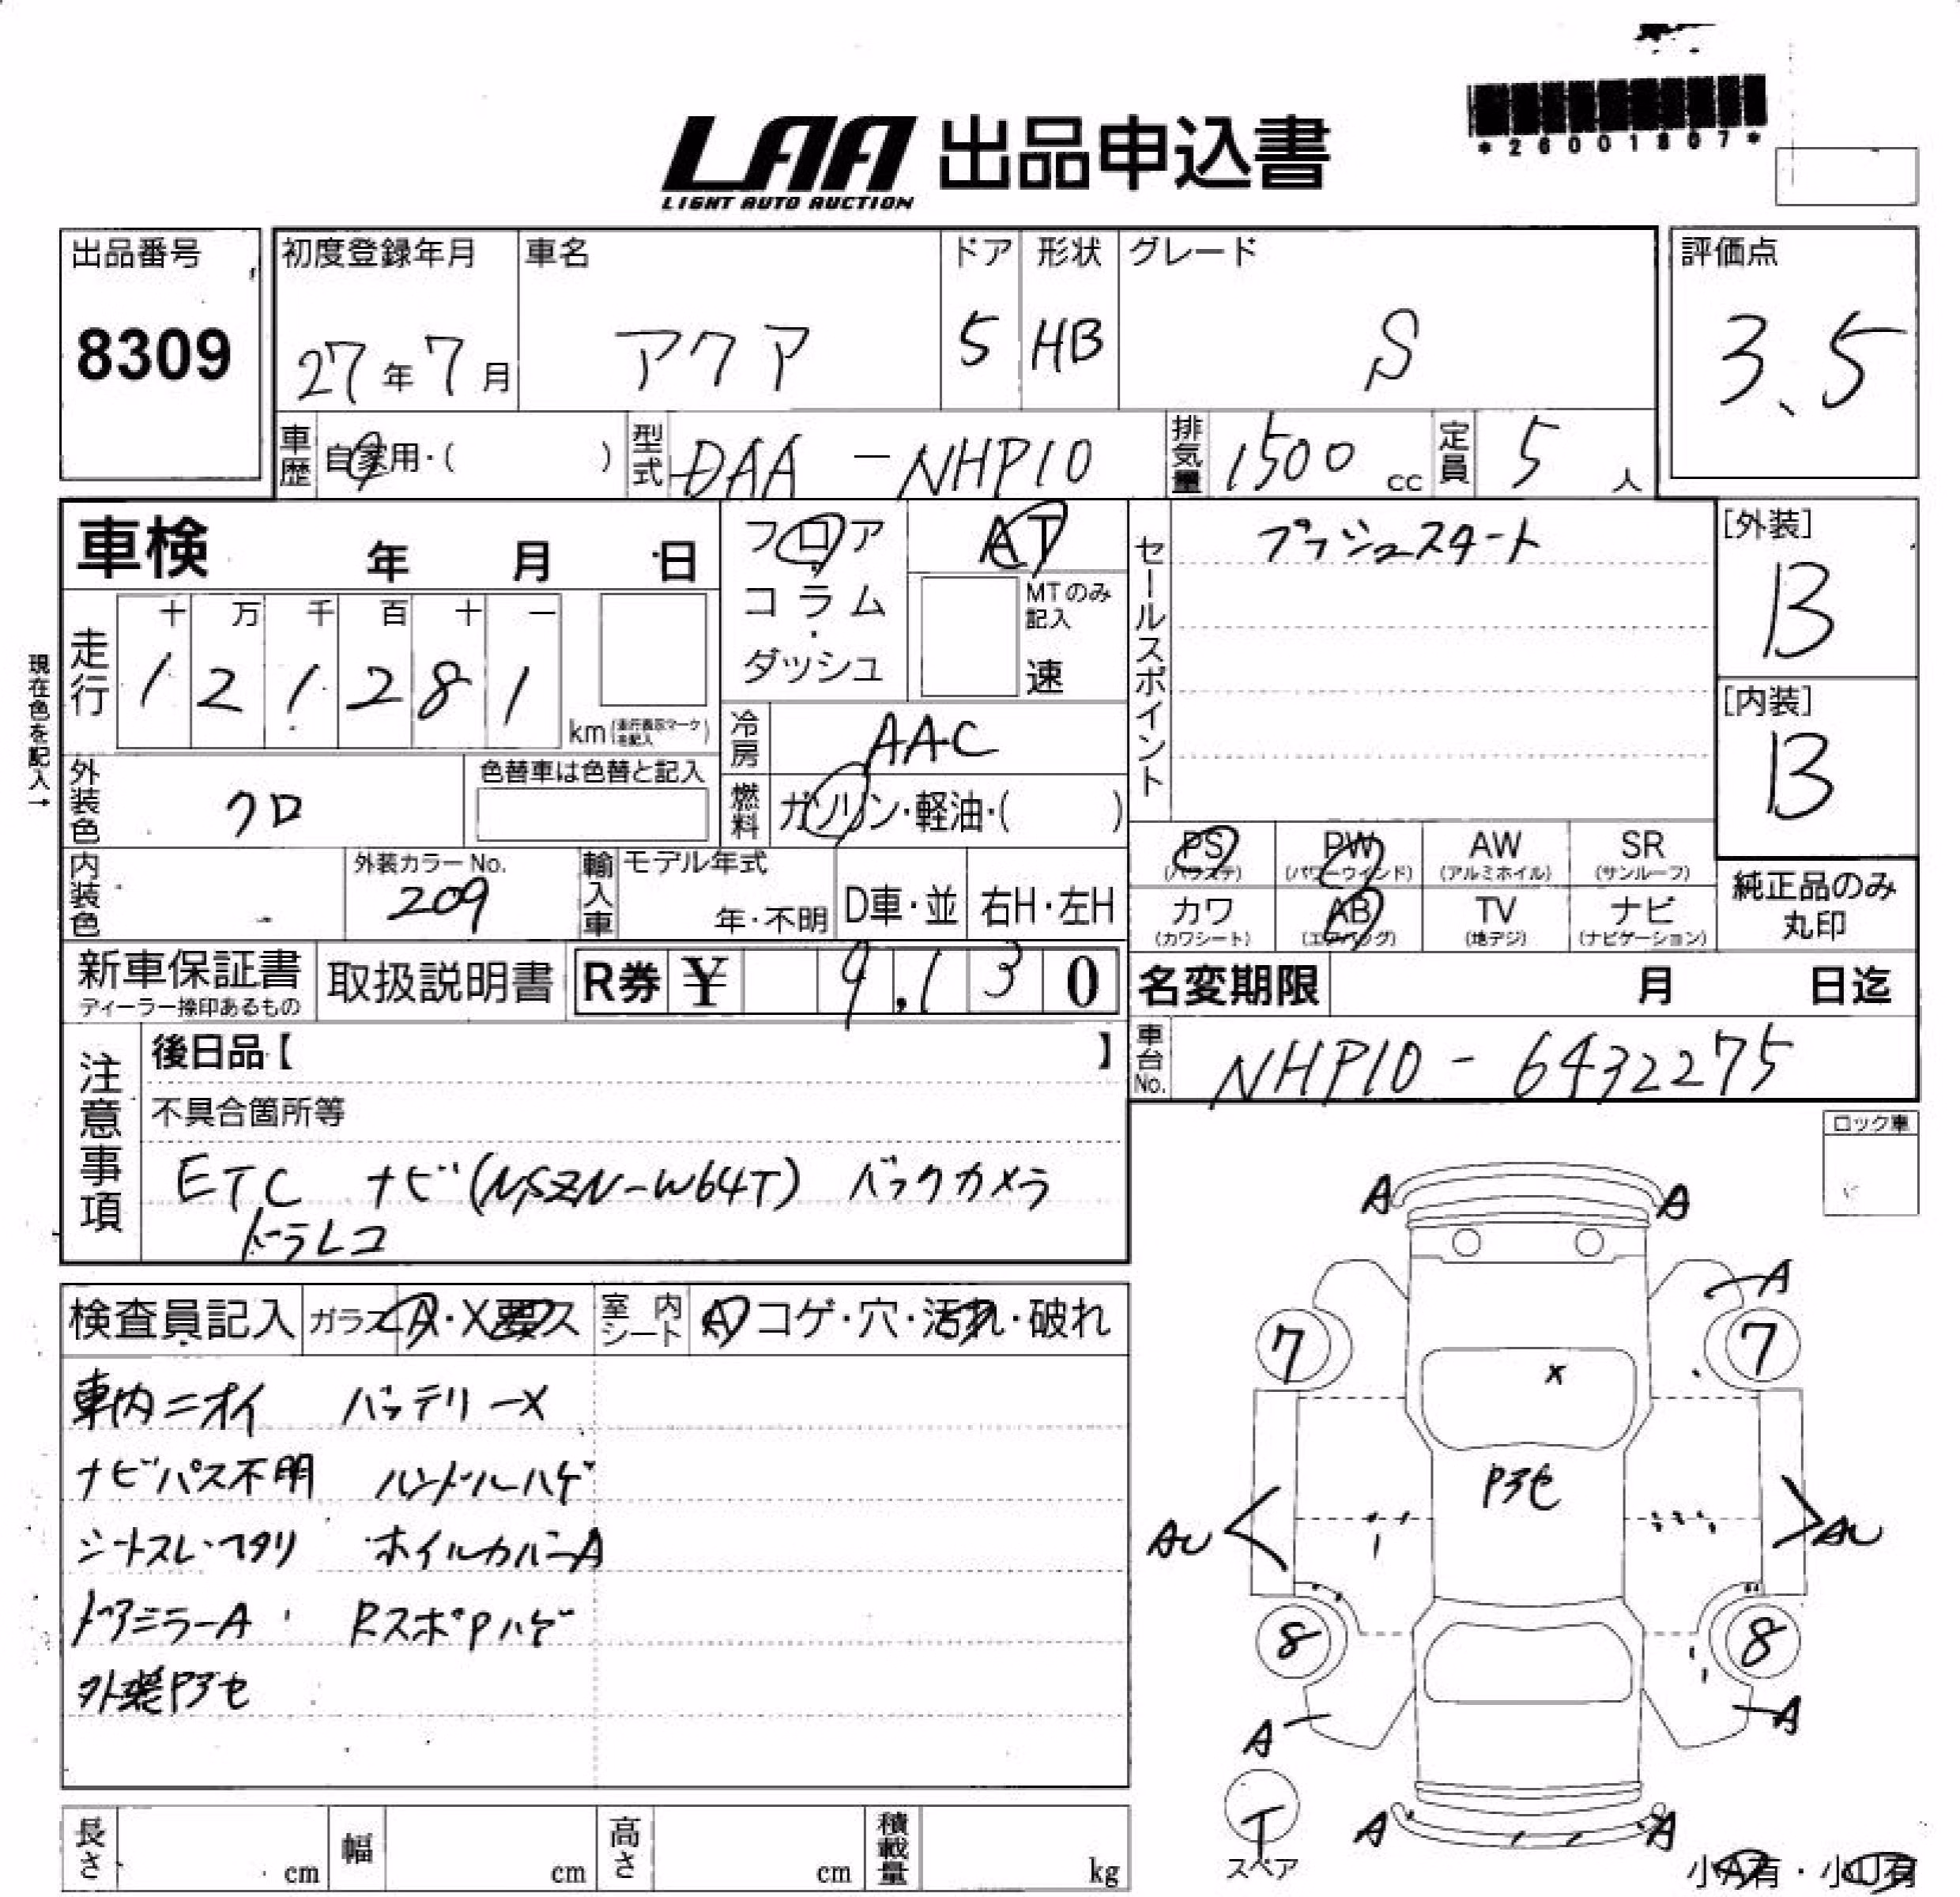 *26001807*
LAA 出品申込書
LIGHT AUTO AUCTION
出品番号
8309
初度登録年月
27年7月
車名
アクア
ドア
5
形状
HB
グレード
S
評価点
3.5
車歴 自家用・( )
型式 DAA-NHP10
排気量 1500 cc
定員 5人
車検 年 月 日
フロア・コラム・ダッシュ
AT
MTのみ記入
速
セールスポイント
プッシュスタート
[外装]
B
[内装]
B
現在色を記入→
走行
十 万 千 百 十 一
1 2 1 2 8 1
km(走行表示マークを記入)
冷房 AAC
外装色 クロ
色替車は色替と記入
燃料 ガソリン・軽油・( )
PS (パワステ)
PW (パワーウインド)
AW (アルミホイル)
SR (サンルーフ)
カワ (カワシート)
AB (エアバッグ)
TV (地デジ)
ナビ (ナビゲーション)
純正品のみ丸印
内装色
外装カラーNo.
209
輸入車
モデル年式
年・不明
D車・並
右H・左H
新車保証書
ディーラー捺印あるもの
取扱説明書
R券 ¥ 9,130
名変期限 月 日迄
車台No. NHP10-6432275
注意事項
後日品【 】
不具合箇所等
ETC ナビ(NSZN-W64T) バックカメラ
ドラレコ
ロック車
検査員記入
ガラス A・X要ス
室内シート A コゲ・穴・汚れ・破れ
車内ニオイ バッテリーX
ナビパス不明 ハンドルハゲ
シートスレ・ヘタリ ホイルカバーA
ドアミラーA RスポPハゲ
外装Pヤセ
A A
A
7 7
X
Pヤセ
AU AU
8 8
A A
T
スペア
A A
小A有・小U有
長さ cm
幅 cm
高さ cm
積載量 kg